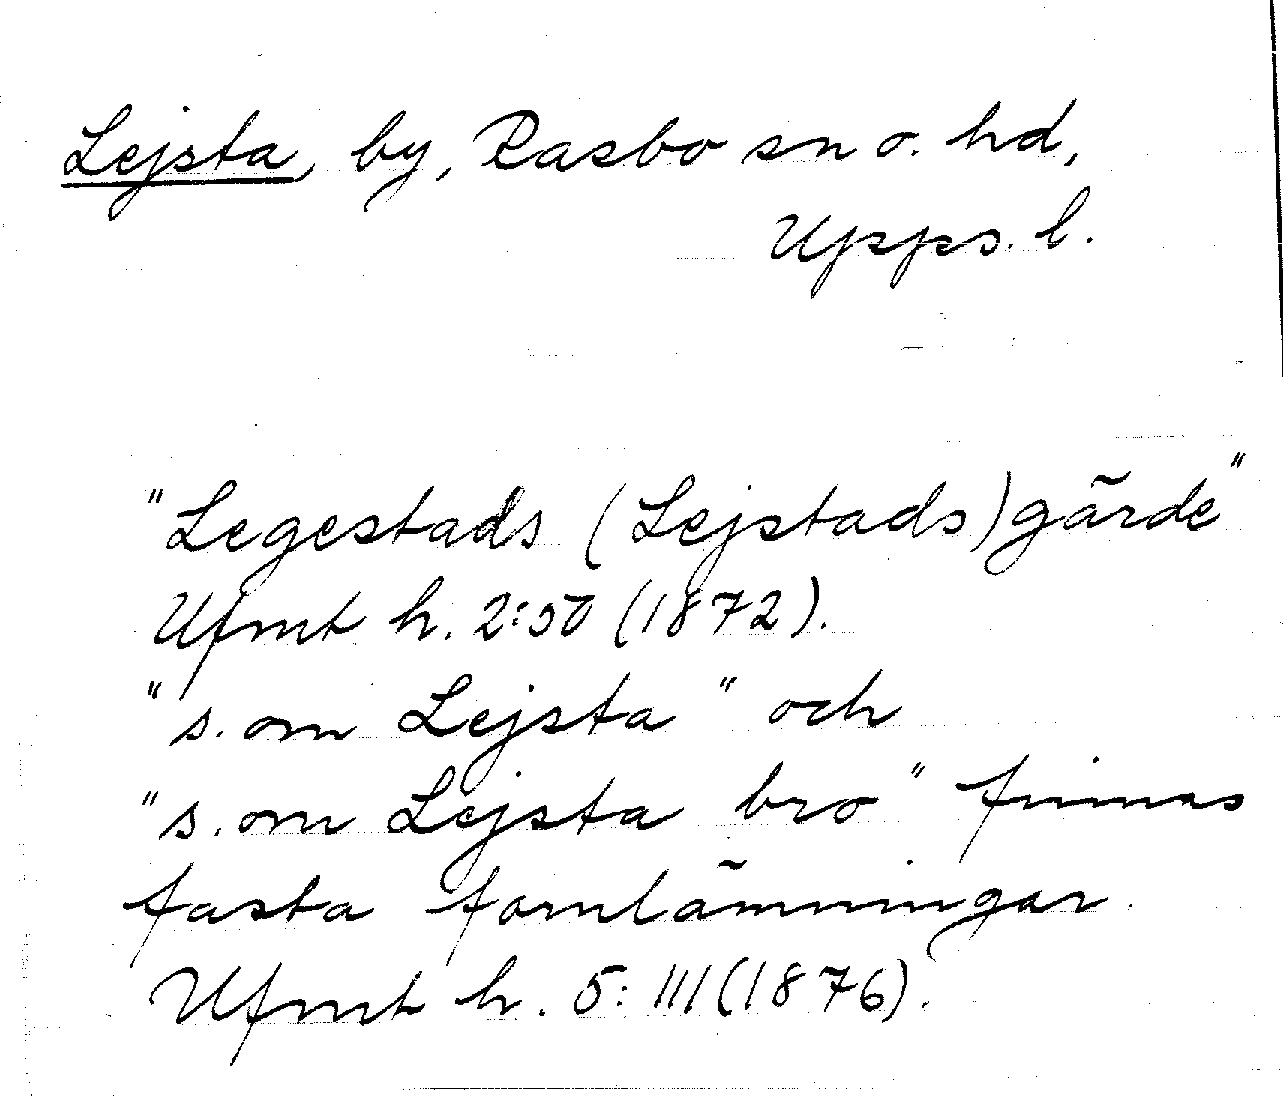 Lejsta, by, Rasbo sn o. hd,
Upps. l.
"Legestads (Lejstads)gärde"
Ufmt h. 2:50 (1872).
"s. om Lejsta" och
"s. om Lejsta bro" finnas
fasta fornlämningar.
Ufmt h. 5: III (1876).